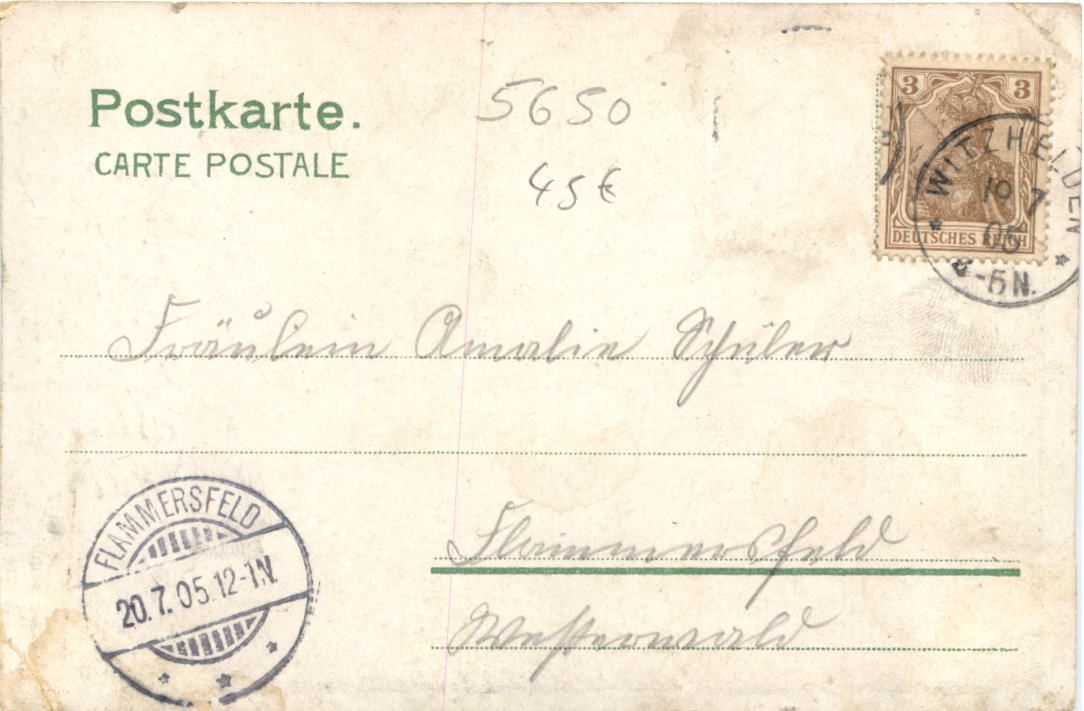 Postkarte.
CARTE POSTALE
5650
45€
3 3
DEUTSCHES REICH
WITZHELDEN
19 7
05
-5N.
Fräulein Amalie Schüler
Flammersfeld
Westerwald
FLAMMERSFELD
20.7.05.12-1N.